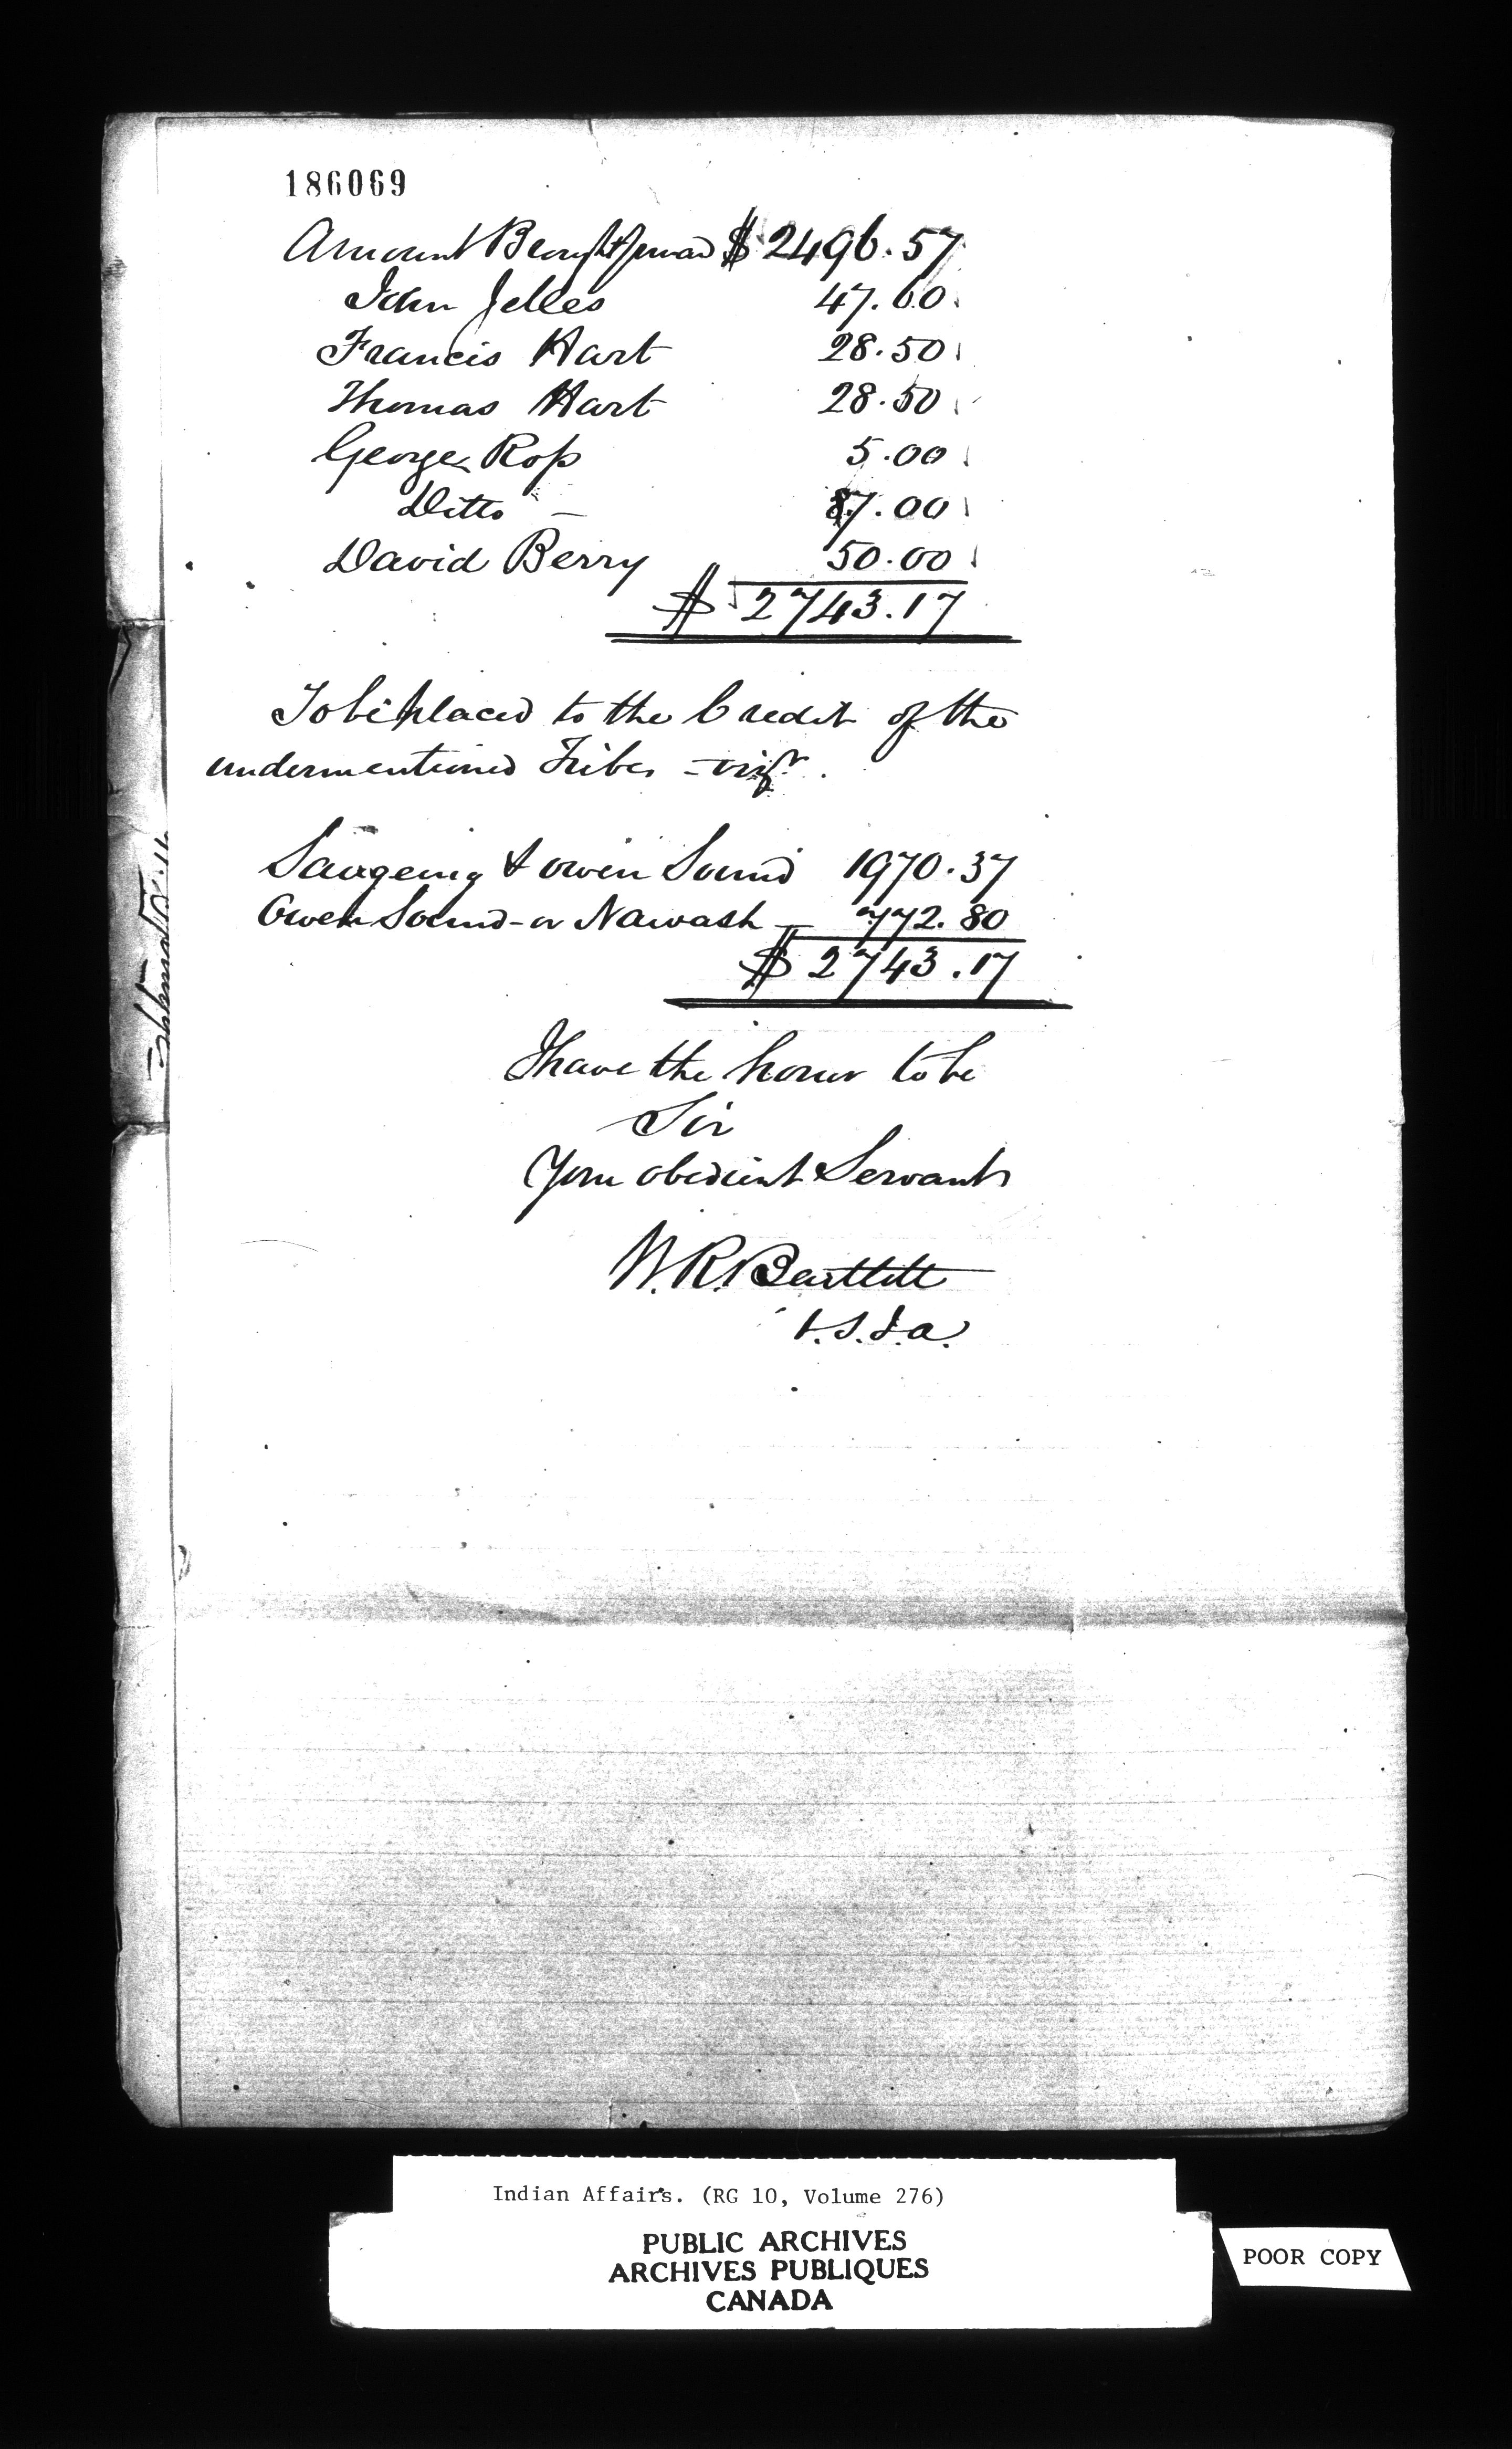 186069
Amount Brought forward $ 2496.57
John Jelles 47.60
Francis Hart 28.50
Thomas Hart 28.50
George Ross 5.00
Ditto – 87.00
David Berry 50.00
$ 2743.17
To be placed to the Credit of the
undermentioned Tribes – viz.
Saugeeng & Owen Sound 1970.37
Owen Sound – or Nawash – 772.80
$ 2743.17
I have the honor to be
Sir
Your obedient Servant
W. R. Bartlett
V.S.I.a.
Indian Affairs. (RG 10, Volume 276)
PUBLIC ARCHIVES
ARCHIVES PUBLIQUES
CANADA
POOR COPY